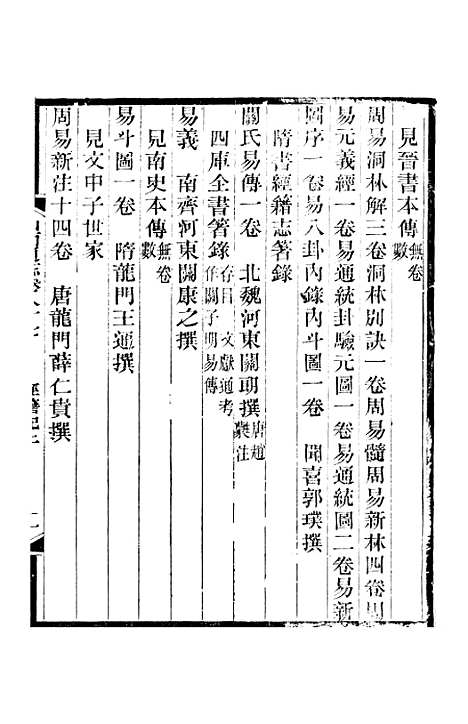 見晉書本傳無卷數
周易洞林解三卷洞林別訣一卷周易髓周易新林四卷周
易元義經一卷易通統卦驗元圖一卷易通統圖二卷易新
圖序一卷易八卦內錄內斗圖一卷 聞喜郭璞撰
隋書經籍志著錄
關氏易傳一卷 北魏河東關朗撰唐趙蕤注
四庫全書著錄存目 文獻通考作關子明易傳
易義 南齊河東關康之撰
見南史本傳無卷數
易斗圖一卷 隋龍門王通撰
見文中子世家
周易新注十四卷 唐龍門薛仁貴撰